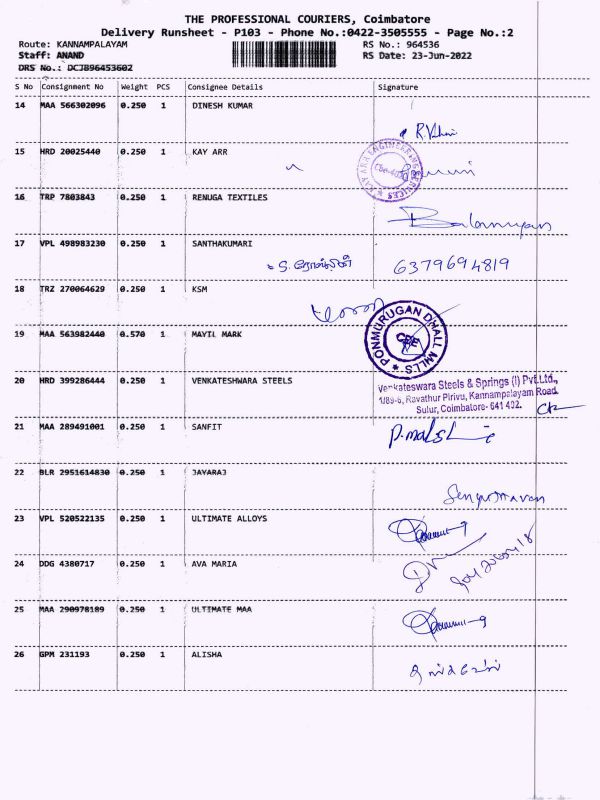 THE PROFESSIONAL COURIERS, Coimbatore
Delivery Runsheet - P103 - Phone No.:0422-3505555 - Page No.:2
Route: KANNAMPALAYAM RS No.: 964536
Staff: ANAND RS Date: 23-Jun-2022
DRS No.: DCJ896453602
S No Consignment No Weight PCS Consignee Details Signature
14 MAA 566302096 0.250 1 DINESH KUMAR
15 HRD 20025440 0.250 1 KAY ARR
KAY ARR ENGINEERING SERVICES
16 TRP 7803843 0.250 1 RENUGA TEXTILES
17 VPL 498983230 0.250 1 SANTHAKUMARI
6379694819
18 TRZ 270064629 0.250 1 KSM
19 MAA 563982440 0.570 1 MAYIL MARK
PONMURUGAN DHALL MILLS
CBE
20 HRD 399286444 0.250 1 VENKATESHWARA STEELS
Venkateswara Steels & Springs (I) Pvt.Ltd.,
1/89-6, Ravathur Pirivu, Kannampalayam Road
Sulur, Coimbatore- 641 402.
21 MAA 289491001 0.250 1 SANFIT
22 BLR 2951614830 0.250 1 JAYARAJ
23 VPL 520522135 0.250 1 ULTIMATE ALLOYS
24 DDG 4380717 0.250 1 AVA MARIA
25 MAA 290978189 0.250 1 ULTIMATE MAA
26 GPM 231193 0.250 1 ALISHA